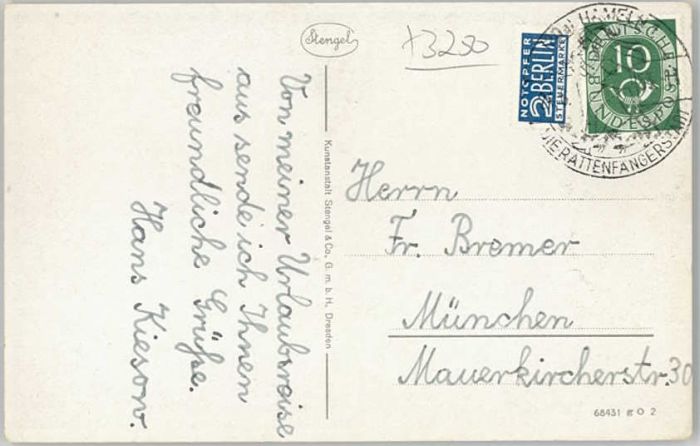 Stengel
x3250
NOTOPFER
2 BERLIN
STEUERMARKE
10
DEUTSCHE
BUNDESPOST
HAMELN
DIE RATTENFÄNGERSTADT
Von meiner Urlaubsreise
aus sende ich Ihnen
freundliche Grüße.
Hans Kieson.
Kunstanstalt Stengel & Co., G. m. b. H., Dresden
Herrn
Fr. Bremer
München
Mauerkircherstr. 30
68431 g O 2